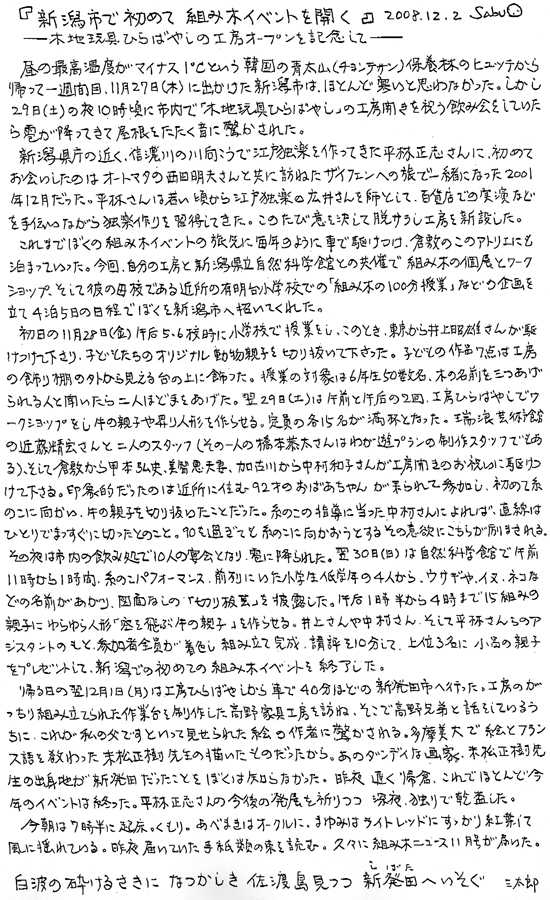 『新潟市で初めて 組み木イベントを開く』 2008.12.2 Sabu
——木地玩具ひらばやしの工房オープンを記念して——
昼の最高温度がマイナス1℃という韓国の青太山(チョンテサン)保養林のヒュッテから
帰って一週間目、11月27日(木)に出かけた新潟市は、ほとんど寒いと思わなかった。しかし
29日(土)の夜10時頃に市内で「木地玩具ひらばやし」の工房開きを祝う飲み会をしていた
ら雹が降ってきて屋根をたたく音に驚かされた。
新潟県庁の近く、信濃川の川向こうで江戸独楽を作ってきた平林正志さんに、初めて
お会いしたのはオートマタの西田明夫さんと共に訪ねたザイフェンへの旅で一緒になった2001
年12月だった。平林さんは若い頃から江戸独楽の広井さんを師として、百貨店での実演など
を手伝いながら独楽作りを習得してきた。このたび意を決して脱サラし工房を新設した。
これまでぼくの組み木イベントの旅先に毎年のように車で駆けつけ、倉敷のこのアトリエにも
泊まっていった。今回、自分の工房と新潟県立自然科学館との共催で組み木の個展とワーク
ショップ、そして彼の母校である近所の有明台小学校での「組み木の100分授業」などの企画を
立て4泊5日の日程でぼくを新潟市へ招いてくれた。
初日の11月28日(金)午后5・6校時に小学校で授業をし、このとき、東京から井上昭雄さんが駆
けつけて下さり、子どもたちのオリジナル動物親子を切り抜いて下さった。子どもの作品7点は工房
の飾り棚の外から見える台の上に飾った。授業の対象は6年生50数名、木の名前を三つあげ
られる人と聞いたら二人ほど手をあげた。翌29日(土)は午前と午后の2回、工房ひらばやしでワ
ークショップをし牛の親子や昇り人形を作らせる。定員の各15名が満杯となった。瑞浪芸術館
の近藤精宏さんと二人のスタッフ(その一人の橋本恭太さんはわが遊プランの制作スタッフでもあ
る)、そして倉敷から甲本弘史、美智恵夫妻、加古川から中村和子さんが工房開きのお祝いに駆けつ
けて下さる。印象的だったのは近所に住む92才のおばあちゃんが来られて参加し、初めて糸
のこに向かい、牛の親子を切り抜いたことだった。糸のこの指導に当った中村さんによれば、直線は
ひとりでまっすぐに切ったとのこと。90を過ぎても糸のこに向かおうとするその意欲にこちらが励まされる。
その夜は市内の飲み処で10人の宴会となり、雹に降られた。翌30日(日)は自然科学館で午前
11時から1時間、糸のこパフォーマンス、前列にいた小学生低学年の4人から、ウサギや、イヌ、ネコな
どの名前があがり、図面なしの「切り抜き芸」を披露した。午后1時半から4時まで15組みの
親子にゆらゆら人形「空を飛ぶ牛の親子」を作らせる。井上さんや中村さん、そして平林さんらのア
シスタントのもと、参加者全員が着色し組み立て完成、講評を10分して、上位3名に小品の親子
をプレゼントして、新潟での初めての組み木イベントを終了した。
帰る日の翌12月1日(月)は工房ひらばやしから車で40分ほどの新発田市へ行った。工房のが
っちり組み立てられた作業台を制作した高野家具工房を訪ね、そこで高野兄弟と話をしているう
ちに、これが私の父ですといって見せられた絵の作者に驚かされる。多摩美大で絵とフラン
ス語を教わった末松正樹先生の描いたものだったから。あのダンディな画家、末松正樹先
生の出身地が新発田だったことをぼくは知らなかった。昨夜遅く帰倉、これでほとんど今
年のイベントは終った。平林正志さんの今後の発展を祈りつつ深夜、独りで乾盃した。
今朝は7時半に起床。くもり。あべまきはオークルに、まゆみはライトレッドにすっかり紅葉して
風に揺れている。昨夜届いていた手紙類の束を読む。久々に組み木ニュース11月号が届いた。
白波の砕けるさきに なつかしき 佐渡島見つつ 新発田(しばた)へいそぐ 三太郎